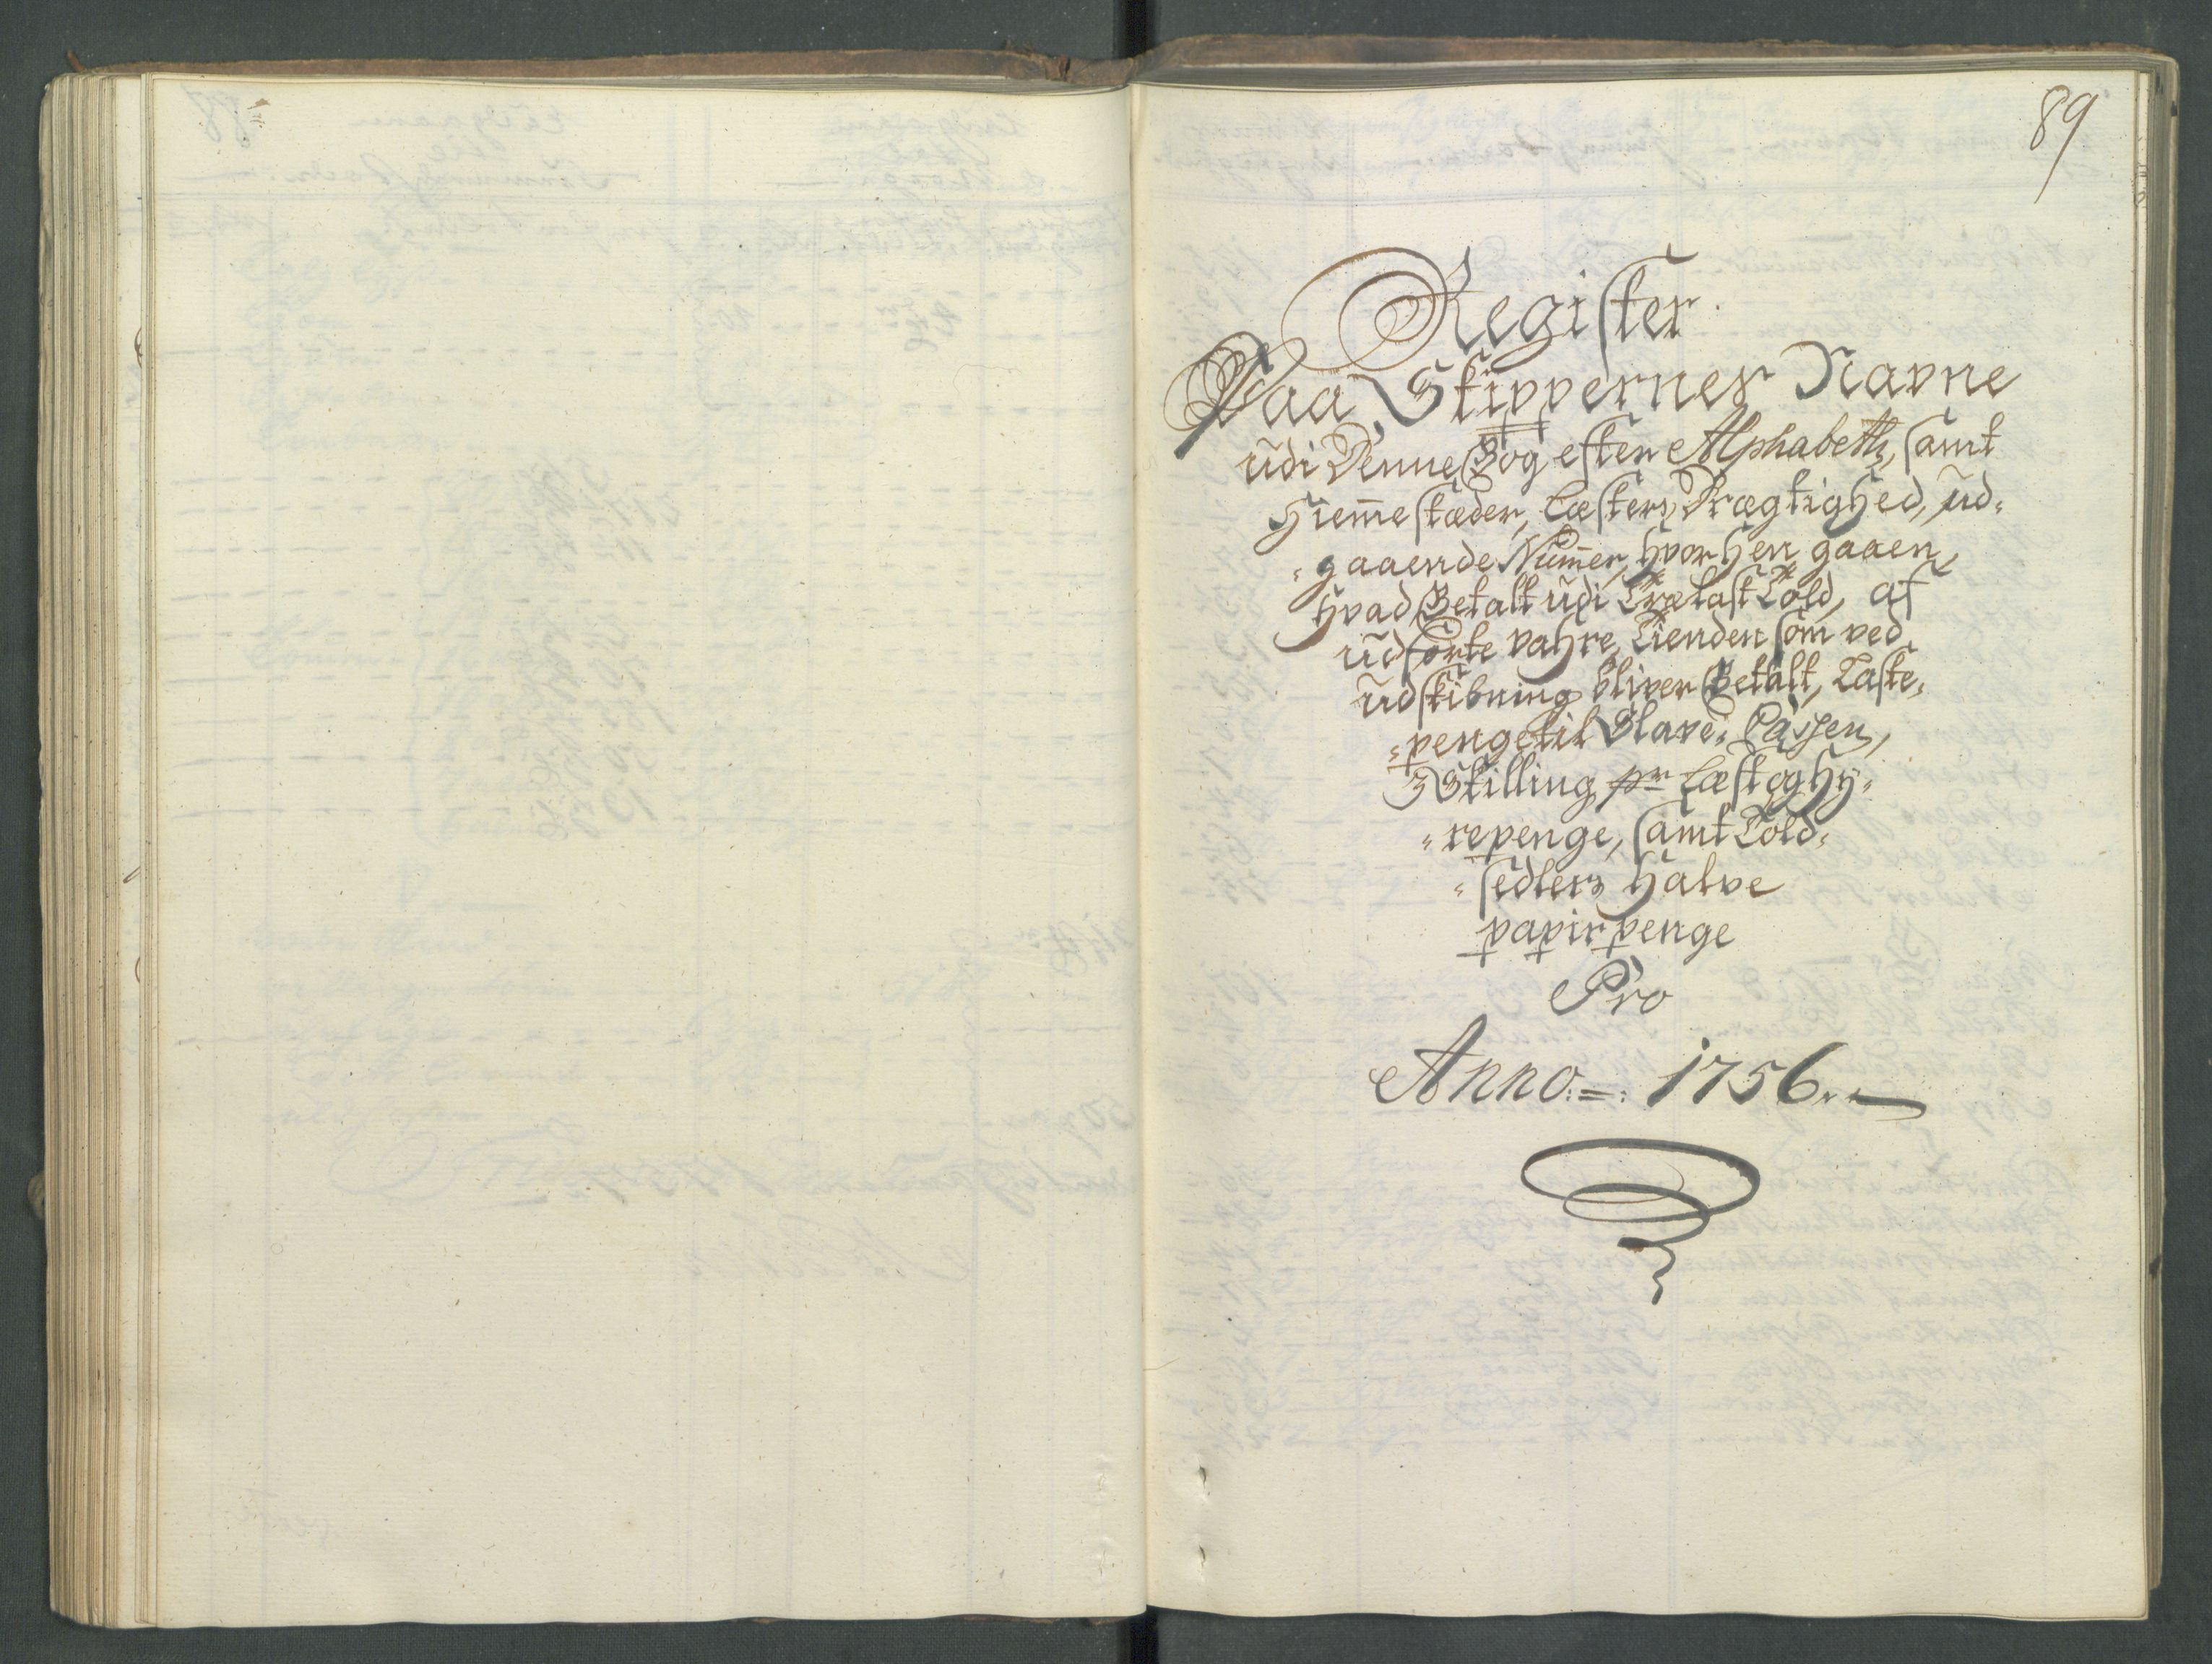 89
Register
Paa Skippernes Navne
udi Denne Bog efter Alphabeth, samt
Hiem̄estæder, Læsters Drægtighed, ud-
-gaaende Num̄er, hvor hen gaaen,
hvad Betalt udi Trælast Told, af
udførte vahre, Tienden som ved
udskibning bliver Betalt, Laste-
-penge til Slave-Passen,
3 Skilling pr Læst og Hy-
-repenge, samt Told-
-sedlers halve
papir penge
Pro
Anno =: 1756